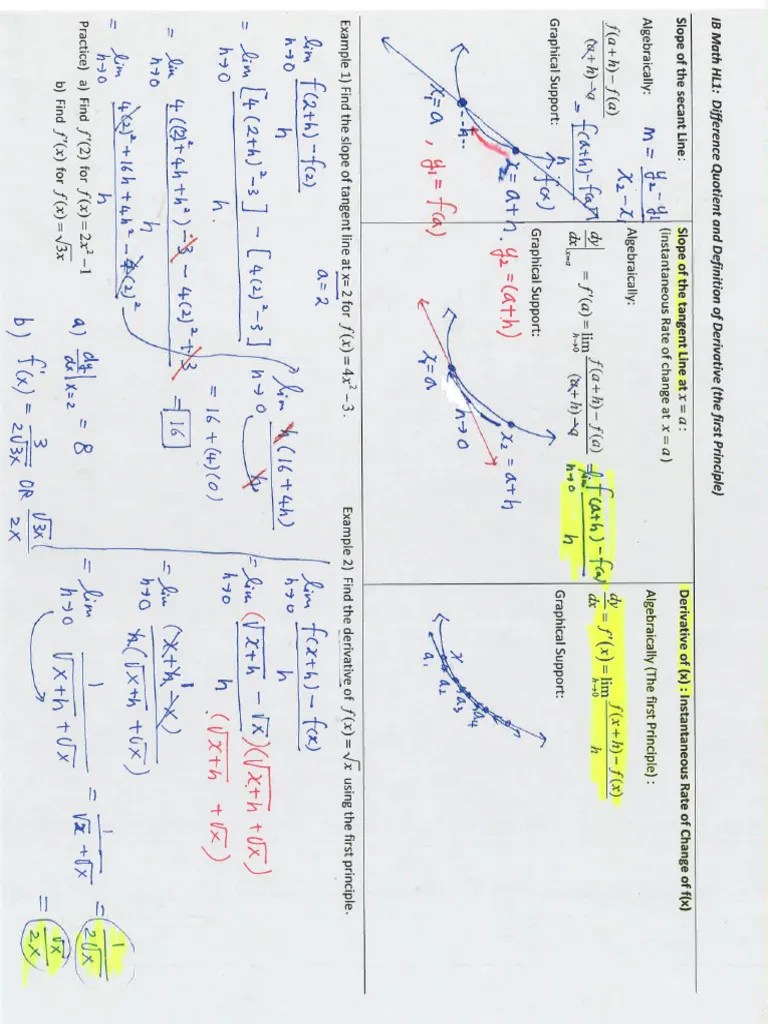 IB Math HL1: Difference Quotient and Definition of Derivative (the first Principle)
Slope of the secant Line :
Algebraically: m = (y₂ - y₁)/(x₂ - x₁)
(f(a+h) - f(a))/((a+h) - a) = (f(a+h) - f(a))/h
Graphical Support:
f(x)
x₂ = a+h. y₂ = (a+h)
h
x₁ = a , y₁ = f(a)
Slope of the tangent Line at x = a :
(instantaneous Rate of change at x = a)
Algebraically:
dy/dx|x=a = f'(a) = lim h→0 (f(a+h) - f(a))/((a+h) - a) = lim h→0 (f(a+h) - f(a))/h
Graphical Support:
x₂ = a+h
h→0
x₁ = a
Derivative of (x) : Instantaneous Rate of Change of f(x)
Algebraically (The first Principle) :
dy/dx = f'(x) = lim h→0 (f(x+h) - f(x))/h
Graphical Support:
x
a₁ a₂ a₃ a₄
Example 1) Find the slope of tangent line at x= 2 for f(x) = 4x² - 3 .
a = 2
lim h→0 (f(2+h) - f(2))/h
= lim h→0 ([4(2+h)² - 3] - [4(2)² - 3])/h.
= lim h→0 (4((2)² + 4h + h²) - 3 - 4(2)² + 3)/h
= lim h→0 (4(2)² + 16h + 4h² - 4(2)²)/h
lim h→0 h(16 + 4h)/h
= 16 + (4)(0)
= 16
Practice) a) Find f'(2) for f(x) = 2x² - 1
b) Find f'(x) for f(x) = √3x
a) dy/dx|x=2 = 8
b) f'(x) = 3/(2√3x) OR √3x/2x
Example 2) Find the derivative of f(x) = √x using the first principle.
lim h→0 (f(x+h) - f(x))/h
= lim h→0 (√x+h - √x)(√x+h + √x)/h (√x+h + √x)
= lim h→0 (x+h - x)/h(√x+h + √x)
1
= lim h→0 1/(√x+h + √x)
= 1/(√x + √x) = 1/(2√x)
= √x/2x